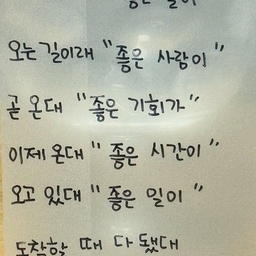 좋은 일이
오는 길이래 "좋은 사람이"
곧 온대 "좋은 기회가"
이제 온대 "좋은 시간이"
오고 있대 "좋은 일이"
도착할 때 다 됐대